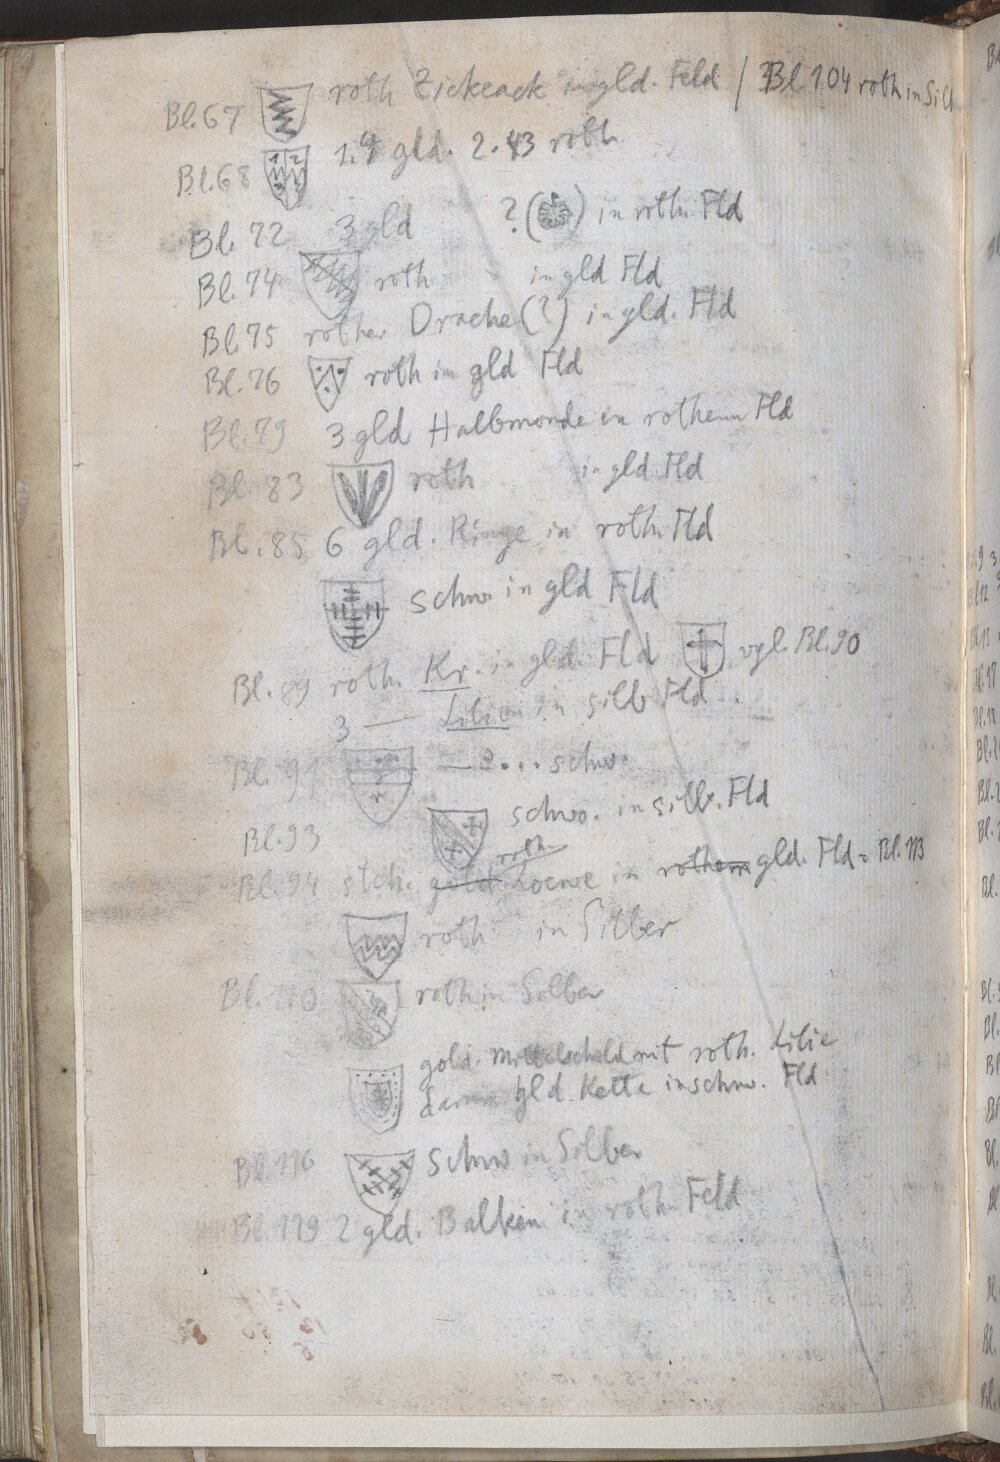 Bl. 67 roth Zickzack in gld. Feld / Bl. 104 roth in Silb
Bl. 68 1. 4 gld. 2. 3 roth
Bl. 72 3 gld ? ( ) in roth. Fld
Bl. 74 roth in gld Fld
Bl. 75 rother Drache (?) in gld. Fld
Bl. 76 roth in gld Fld
Bl. 79 3 gld Halbmonde in rothem Fld
Bl. 83 roth in gld Fld
Bl. 85 6 gld. Ringe in roth. Fld
schw in gld Fld
Bl. 89 roth. Kr. in gld. Fld vgl. Bl. 90
3 — Lilien in silb Fld
Bl. 91 — 2 . . . schw
Bl. 93 schw. in silb. Fld
roth
Bl. 94 stch. gold Loewe in rothem gld. Fld = Bl. 113
roth in Silber
Bl. 110 roth in Silber
gold. Mittelschild mit roth. Lilie
darum gld. Kette in schw. Fld
Bl. 116 Schw in Silber
Bl. 119 2 gld. Balken in roth Feld